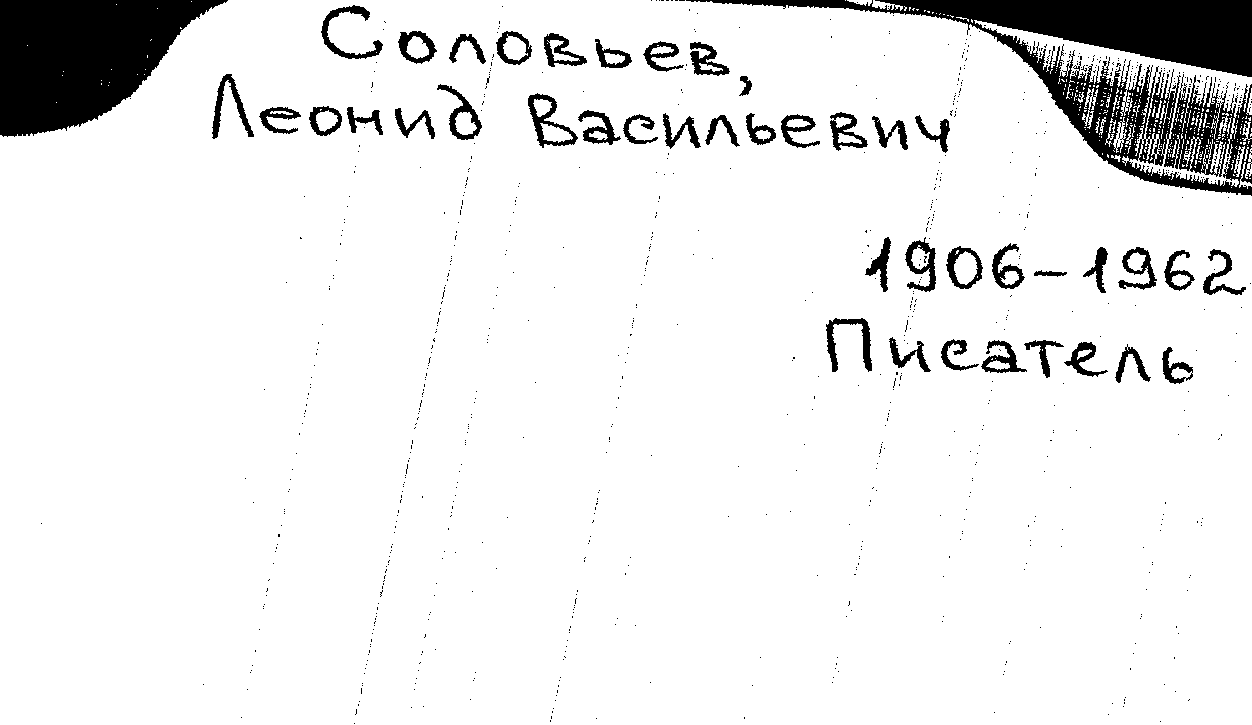 Соловьев,
Леонид Васильевич
1906-1962
Писатель